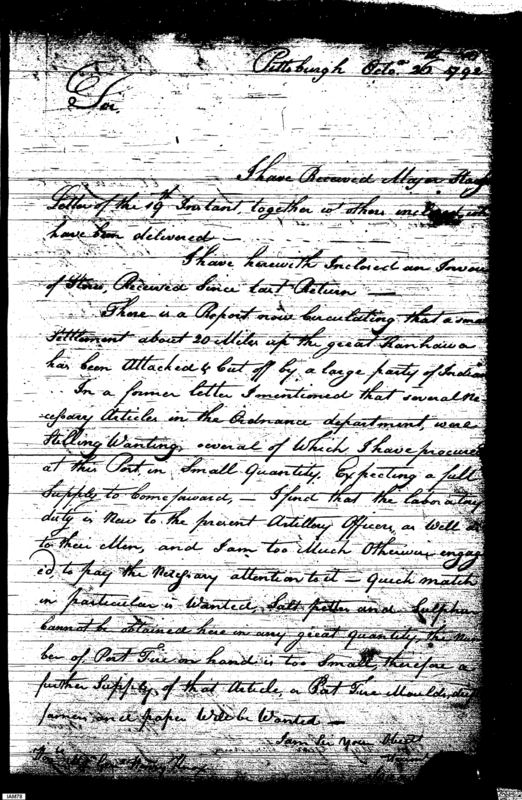 Pittsburgh Octor. 26th 1792
Sir,
I have Received Major
Letter of the 19th Instant, together wt others
have been delivered —
I have herewith Inclosed an Invoi
of Stores, Received Since last Return —
There is a Report now Circulating that a sma
Settlement about 20 Miles up the great Kanhawa
has been Attacked & Cut off by a large party of Indian
In a former letter I mentioned that several Ne
cessary Articles in the Ordnance department, were
Still Wanting, several of Which I have procured
at this Post, in Small Quantity, Expecting a full
Supply to Come forward, — I find that the laboratory
duty is New to the present Artillery Officers, as Well as
to their Men, and I am too Much Otherwise engag
ed, to pay the Necessary attention to it — Quick match
in particular is Wanted, Salt petter and Sulpher
Cannot be obtained here in any great Quantity, the Num
ber of Port Fire on hand is too Small, therefore a
further Supply of that Article, a Port Fire Mould,
and paper Will be Wanted —
I am Sir Your Obedt
IAM78